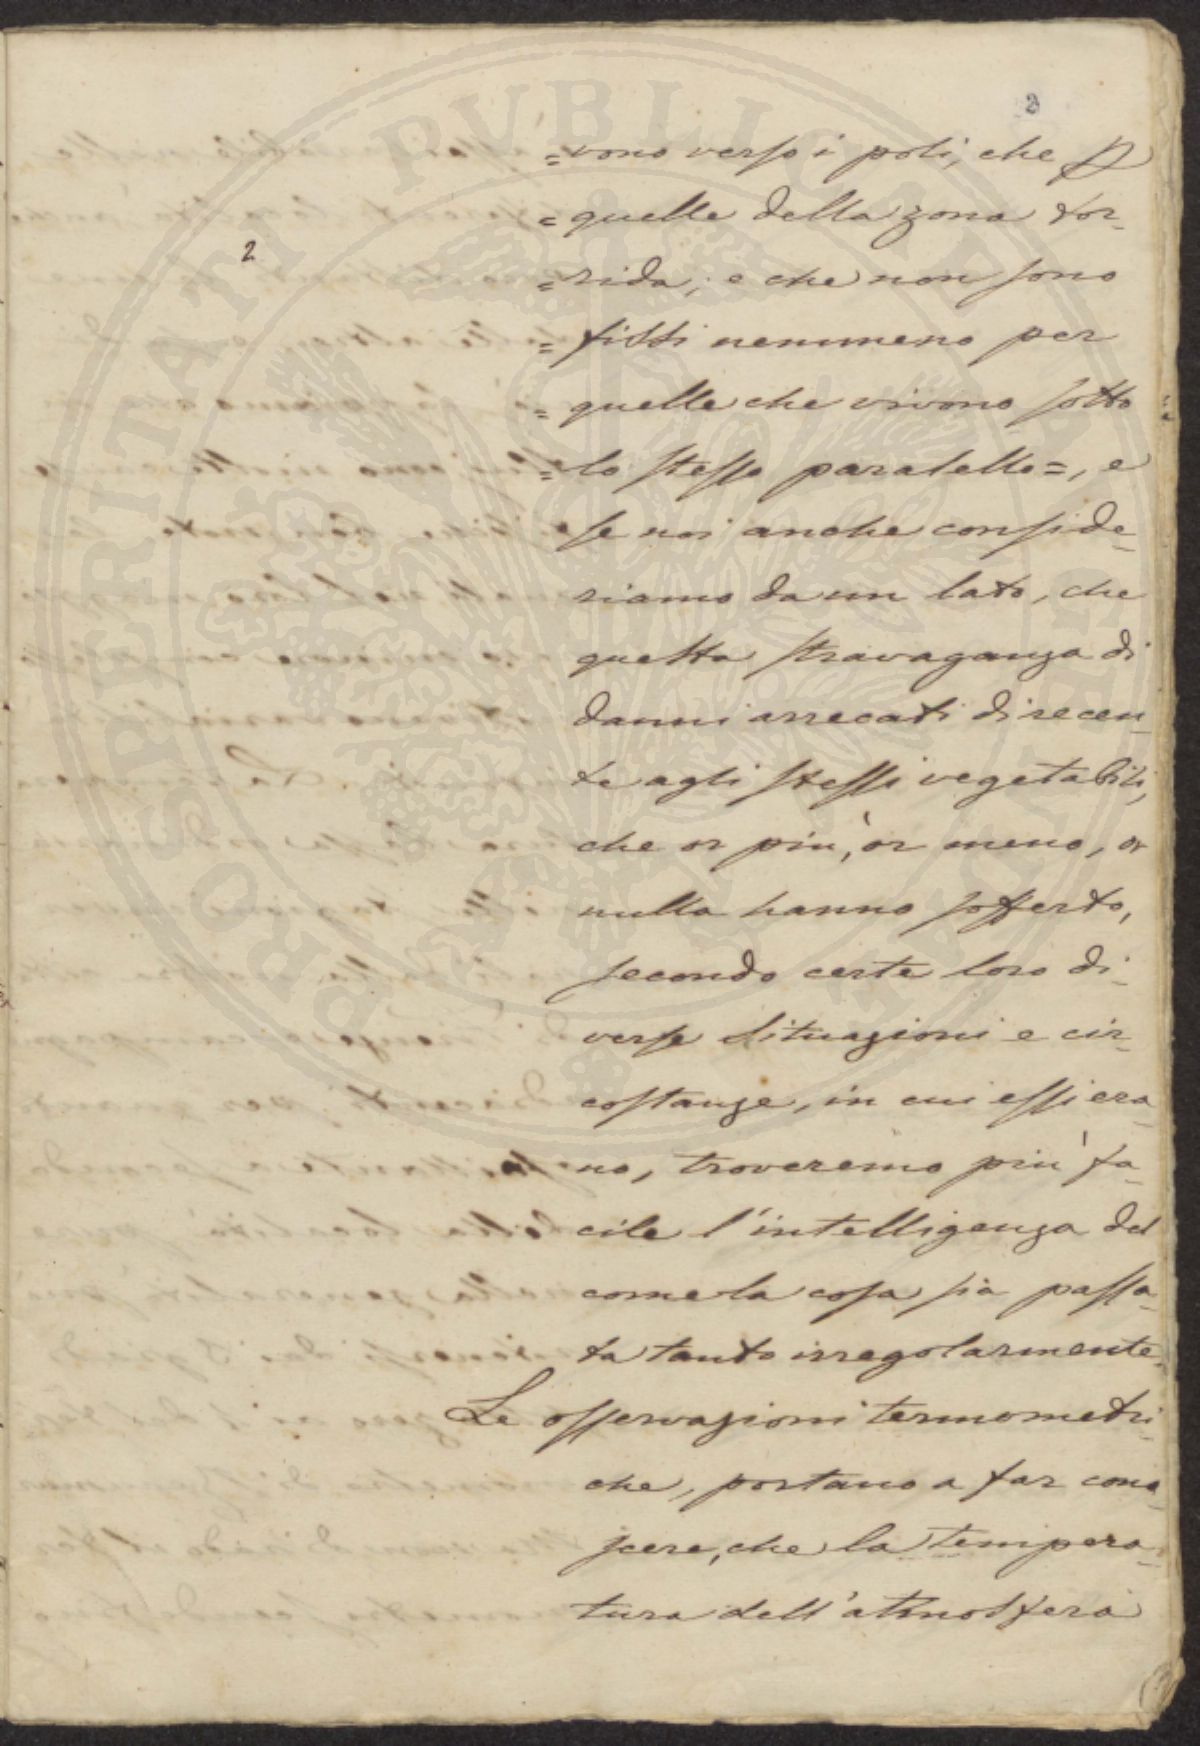 3
=vono verso i poli, che p
=quelle della zona tor-
2
=rida; e che non sono
=fissi nemmeno per
=quelle che vivono sotto
=lo stesso paralello=, e
se noi anche conside-
riamo da un lato, che
questa stravaganza di
danni arrecati di recen-
te agli stessi vegetabili,
che or più, or meno, or
nulla hanno sofferto,
secondo certe loro di-
verse situazioni e cir-
costanze, in cui essi era-
no, troveremo più fa-
cile l'intelligenza del
come la cosa sia passa-
ta tanto irregolarmente.
Le osservazioni termometri-
che, portano a far cono-
scere, che la tempera-
tura dell'atmosfera
PROSPERITATI PVBLICAE AVGENDAE